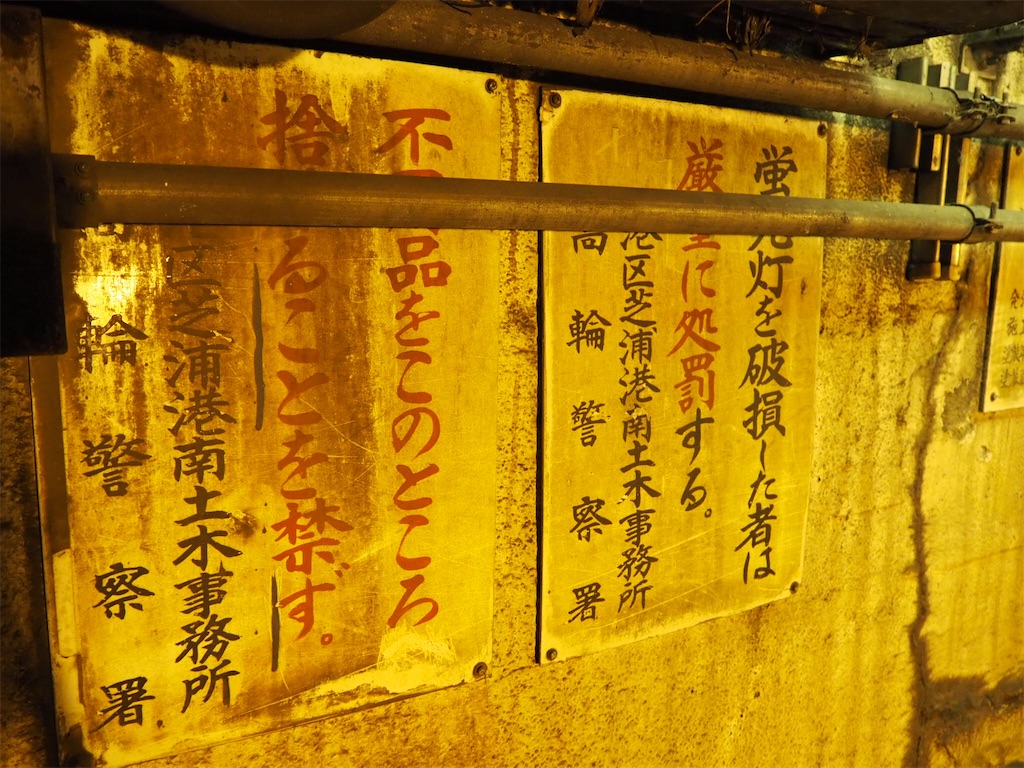 蛍光灯を破損した者は
厳重に処罰する。
港区芝浦港南土木事務所
高輪警察署
不用品をこのところ
捨てることを禁ず。
区芝浦港南土木事務所
高輪警察署